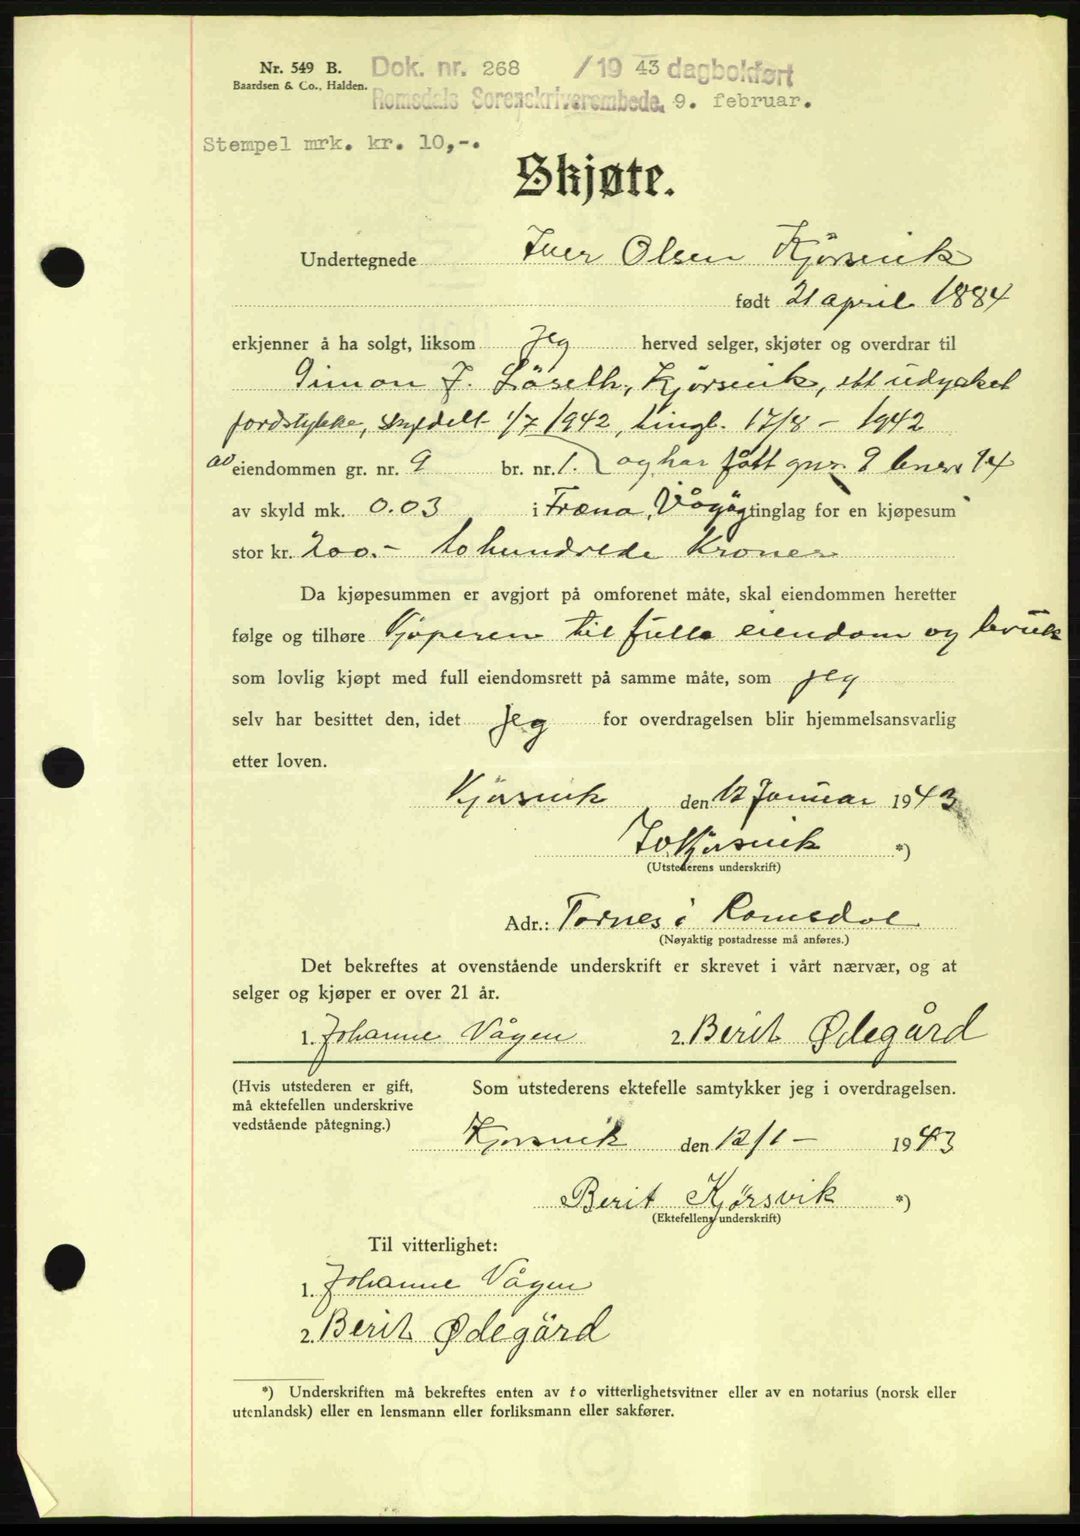 Nr. 549 B. Dok. nr. 268 /19 43 dagbokført
Baardsen & Co., Halden. Romsdals Sorenskriverembede, 9. februar.
Stempel mrk. kr. 10,-.
Skjøte.
Undertegnede Iver Olsen Kjørsvik
født 21 april 1884
erkjenner å ha solgt, liksom jeg herved selger, skjøter og overdrar til
Simon J. Kjørsvik, ett udyrket
jordstykke, skyldelt 1/7 1942, tingl. 17/8 - 1942
av eiendommen gr. nr. 9 br. nr. 1. og har fått gnr 9 bnr 14
av skyld mk. 0.03 i Fræna, Vågøy tinglag for en kjøpesum
stor kr. 200.- tohundrede kroner
Da kjøpesummen er avgjort på omforenet måte, skal eiendommen heretter
følge og tilhøre Kjøperen til fulle eiendom og bruk
som lovlig kjøpt med full eiendomsrett på samme måte, som jeg
selv har besittet den, idet jeg for overdragelsen blir hjemmelsansvarlig
etter loven.
Kjørsvik den 12 Januar 1943
I O Kjørsvik *)
(Utstederens underskrift)
Adr.: Tornes i Romsdal
(Nøyaktig postadresse må anføres.)
Det bekreftes at ovenstående underskrift er skrevet i vårt nærvær, og at
selger og kjøper er over 21 år.
1. Johanne Vågen 2. Berit Ødegård
(Hvis utstederen er gift, Som utstederens ektefelle samtykker jeg i overdragelsen.
må ektefellen underskrive
vedstående påtegning.)
Kjørsvik den 12/1 - 1943
Berit Kjørsvik *)
(Ektefellens underskrift)
Til vitterlighet:
1. Johanne Vågen
2. Berit Ødegård
*) Underskriften må bekreftes enten av to vitterlighetsvitner eller av en notarius (norsk eller
utenlandsk) eller en lensmann eller forliksmann eller sakfører.